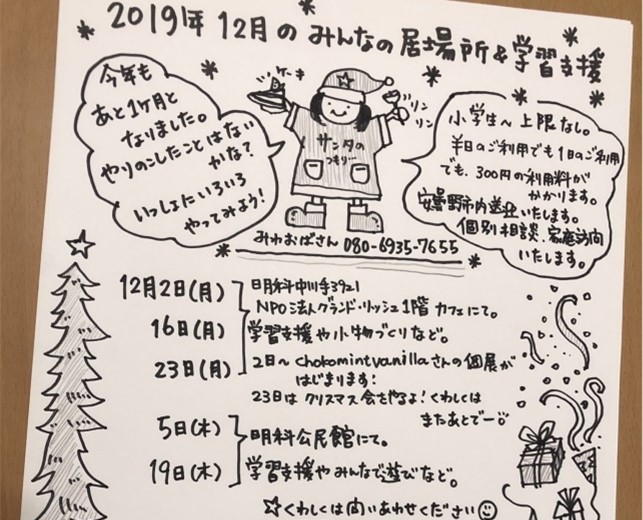 2019年12月のみんなの居場所&学習支援
今年も
あと1ヶ月と
なりました。
やりのこしたことはない
かな?
いっしょにいろいろ
やってみよう!
ケーキ
リン
リン
サンタの
つもり…
小学生〜上限なし。
半日のご利用でも1日のご利用
でも、300円の利用料が
かかります。
安曇野市内送迎いたします。
個別相談、家庭訪問
いたします。
みわおばさん 080-6935-7655
12月2日(月)
16日(月)
23日(月)
明科中川手3921
NPO法人グランド・リッシュ1階 カフェにて。
学習支援や小物づくりなど。
2日〜chokomintvanillaさんの個展が
はじまります!
23日はクリスマス会をやるよ!くわしくは
またあとでー
5日(木)
19日(木)
明科公民館にて。
学習支援やみんなで遊びなど。
☆くわしくは問いあわせください